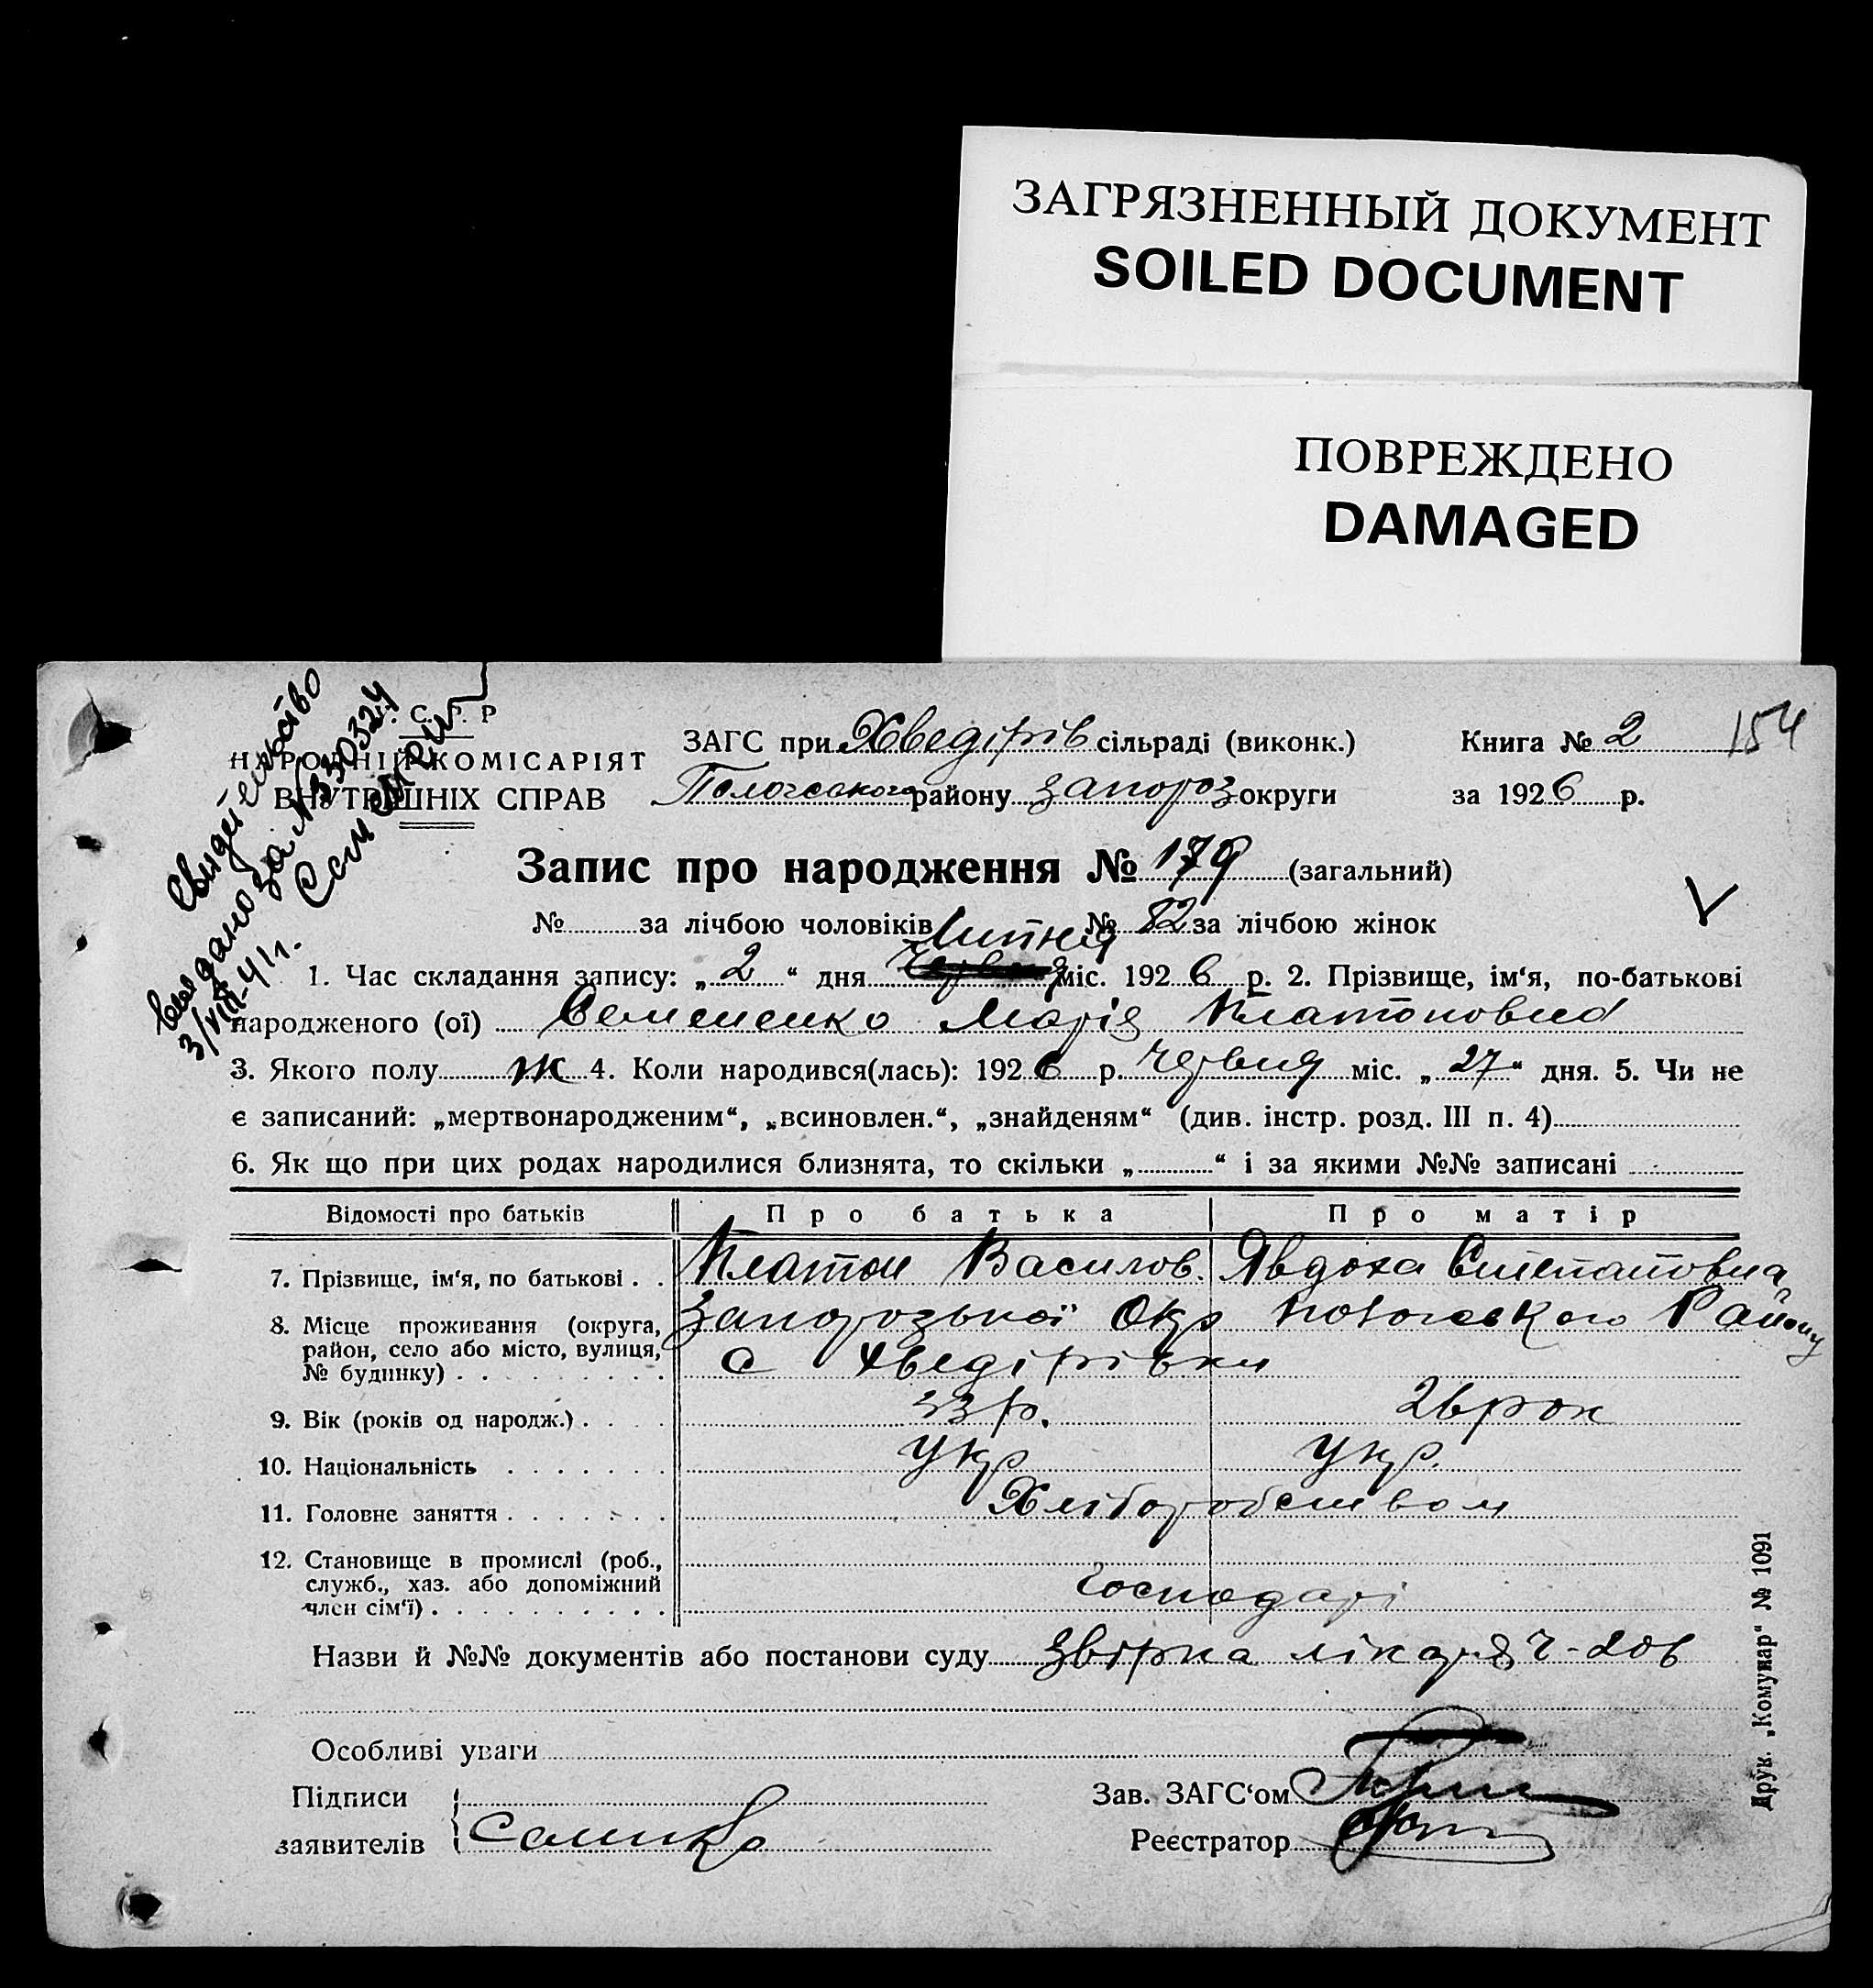 ЗАГРЯЗНЕННЫЙ ДОКУМЕНТ
SOILED DOCUMENT
ПОВРЕЖДЕНО
DAMAGED
Свидетельство
выдано за №330324
3/VIII-41 г.
С. Р. Р
НАРОДНІЙ КОМІСАРІЯТ
ВНУТРІШНІХ СПРАВ
ЗАГС при Хведірів сільраді (виконк.) Книга № 2 154
Пологського району Запороз округи за 1926 р.
Запис про народження № 179 (загальний)
№ за лічбою чоловіків № 82 за лічбою жінок
Липня
1. Час складання запису: „2“ дня Червня міс. 1926 р. 2. Прізвище, ім‘я, по-батькові
народженого (ої) Семененко Марія Платоновна
3. Якого полу ж 4. Коли народився(лась): 1926 р. Червня міс. „27“ дня. 5. Чи не
є записаний: „мертвонародженим“, „всиновлен.“, „знайденям“ (див. інстр. розд. III п. 4)
6. Як що при цих родах народилися близнята, то скільки „ “ і за якими №№ записані
Відомості про батьків Про батька Про матір
7. Прізвище, ім‘я, по батькові Платон Василов. Явдоха Степановна
8. Місце проживання (округа, Запорозької Окр Пологского Району
район, село або місто, вулиця, с Хведірівки
№ будинку)
9. Вік (років од народж.) 33 р. 26 рок
10. Національність Укр Укр.
11. Головне заняття Хліборобством
12. Становище в промислі (роб.,
служб., хаз. або допоміжний Господарі
член сім‘ї)
Назви й №№ документів або постанови суду Звірка лікаря Ч-206
Особливі уваги
Підписи Зав. ЗАГС‘ом
заявителів Реєстратор
Друк. „Комунар“ № 1091